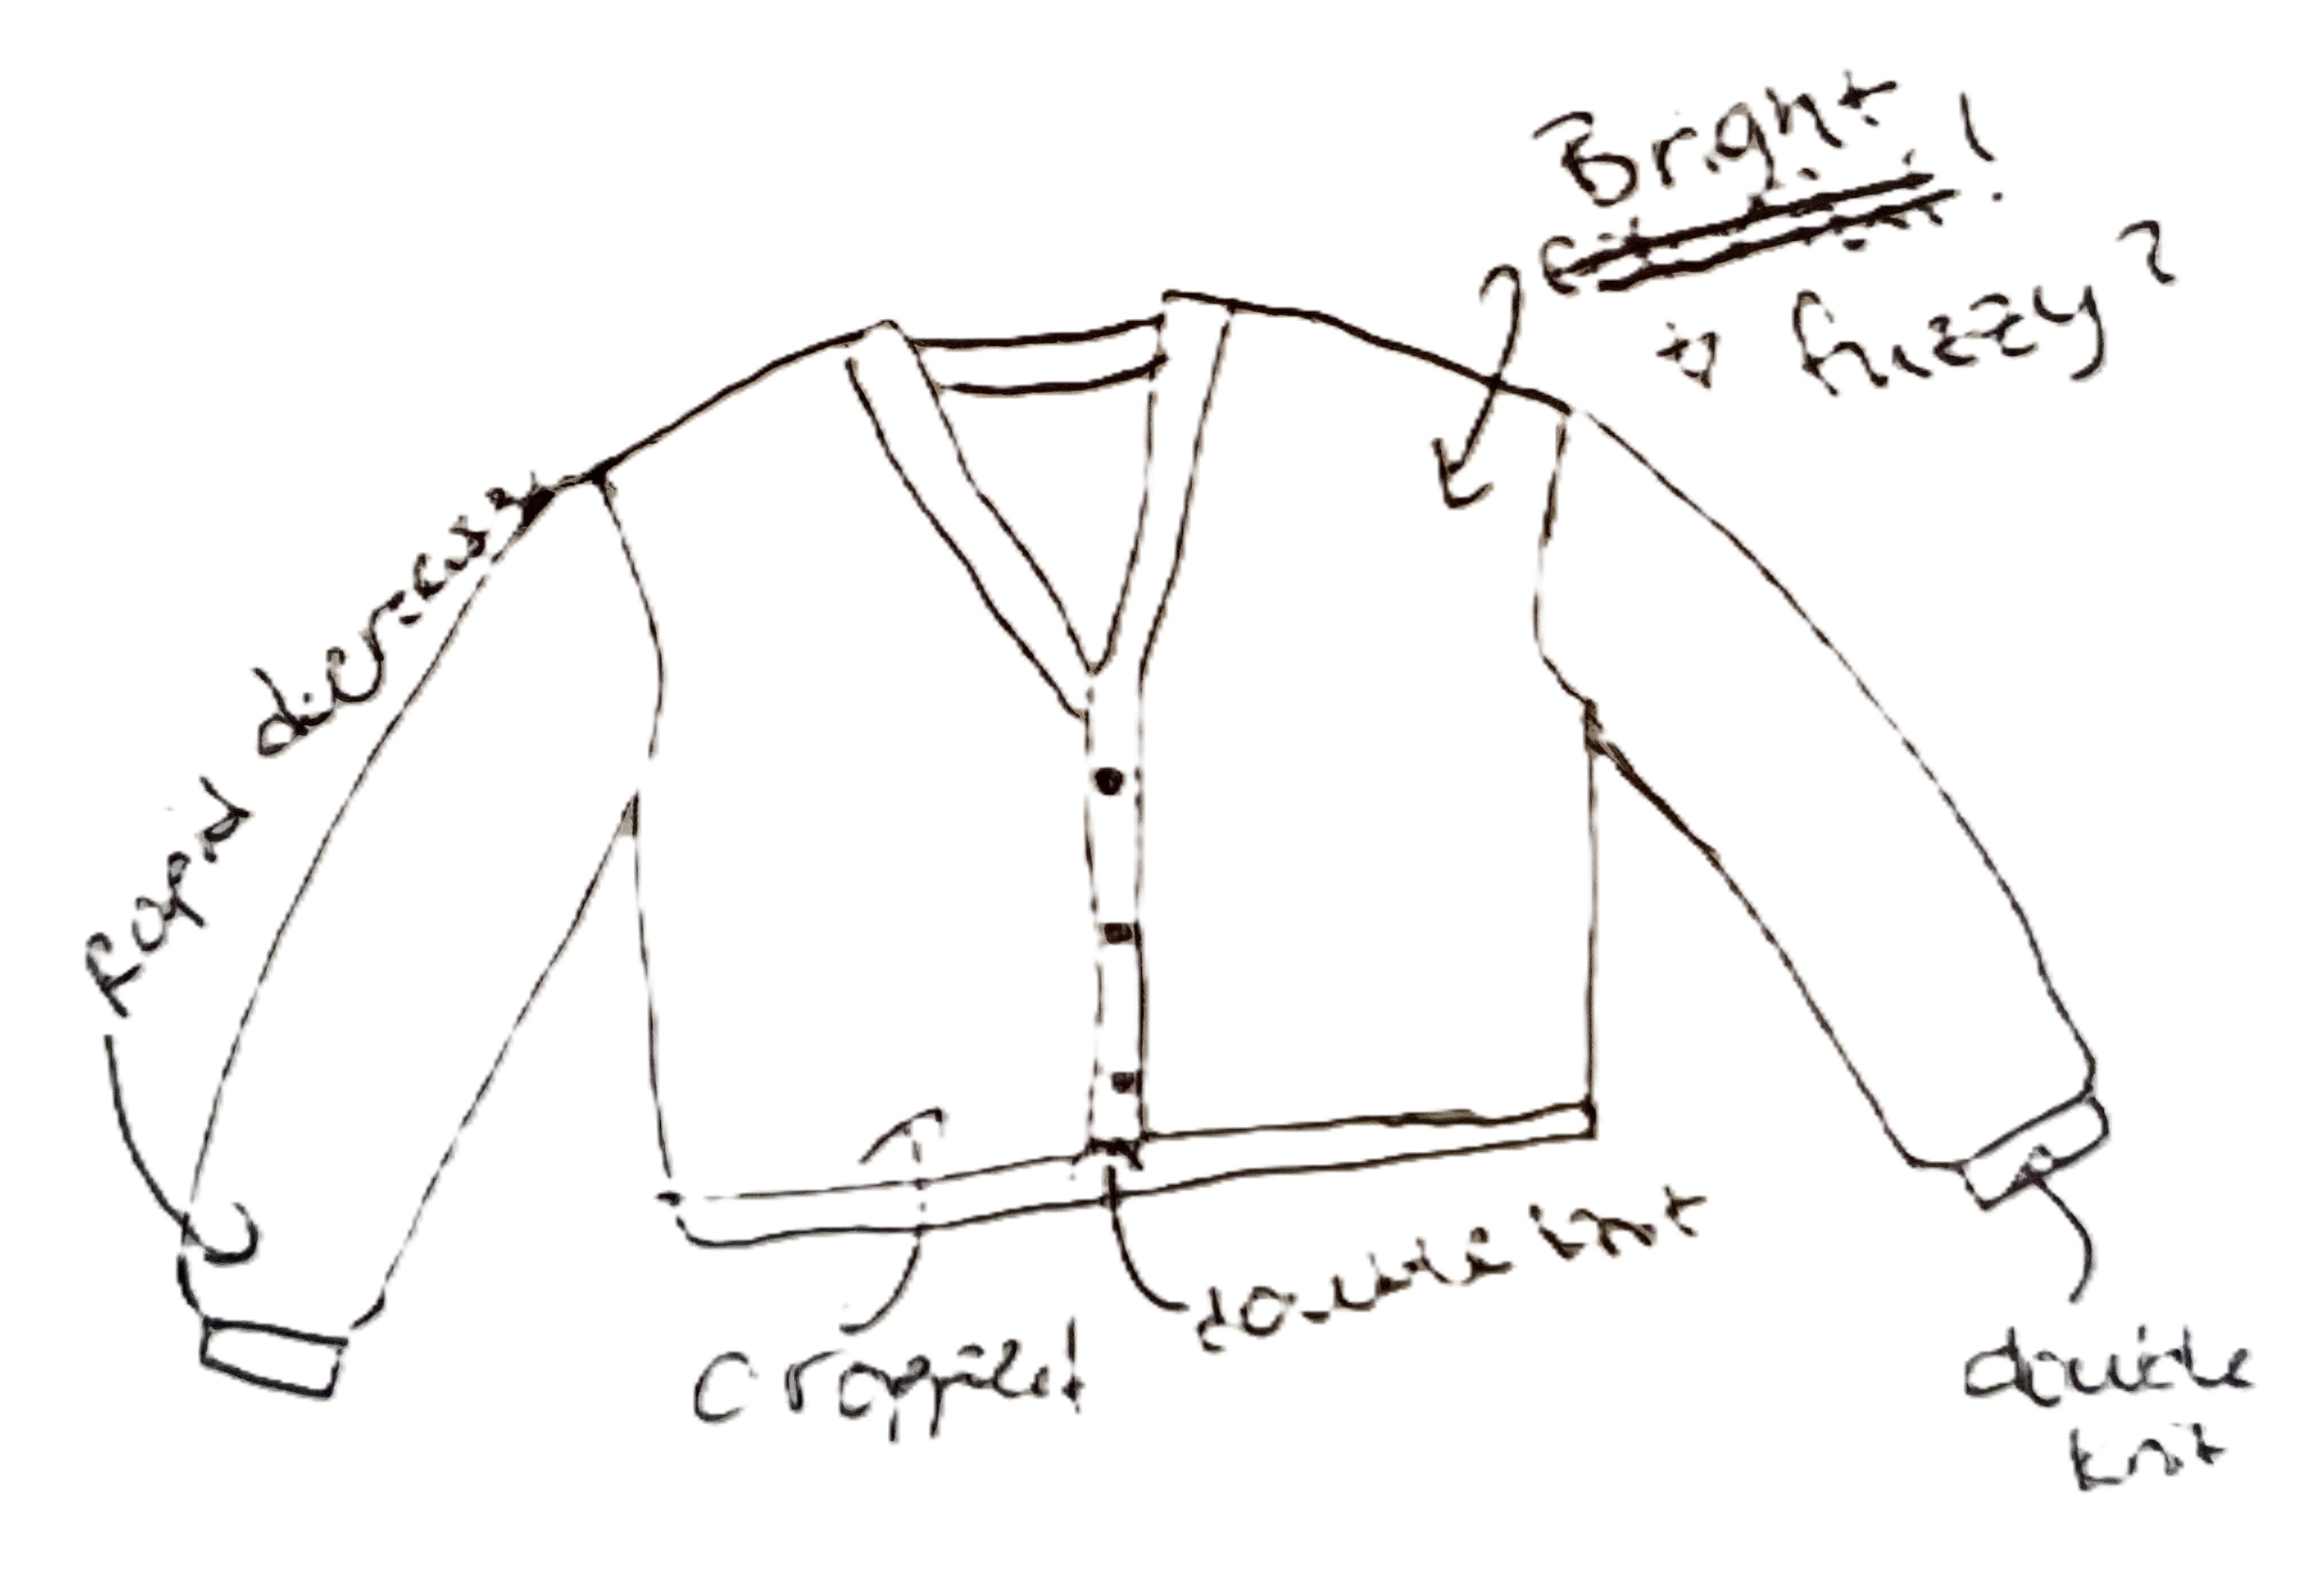 Bright!
& fuzzy?
Rapid decreases
cropped!
double knit
double
knit